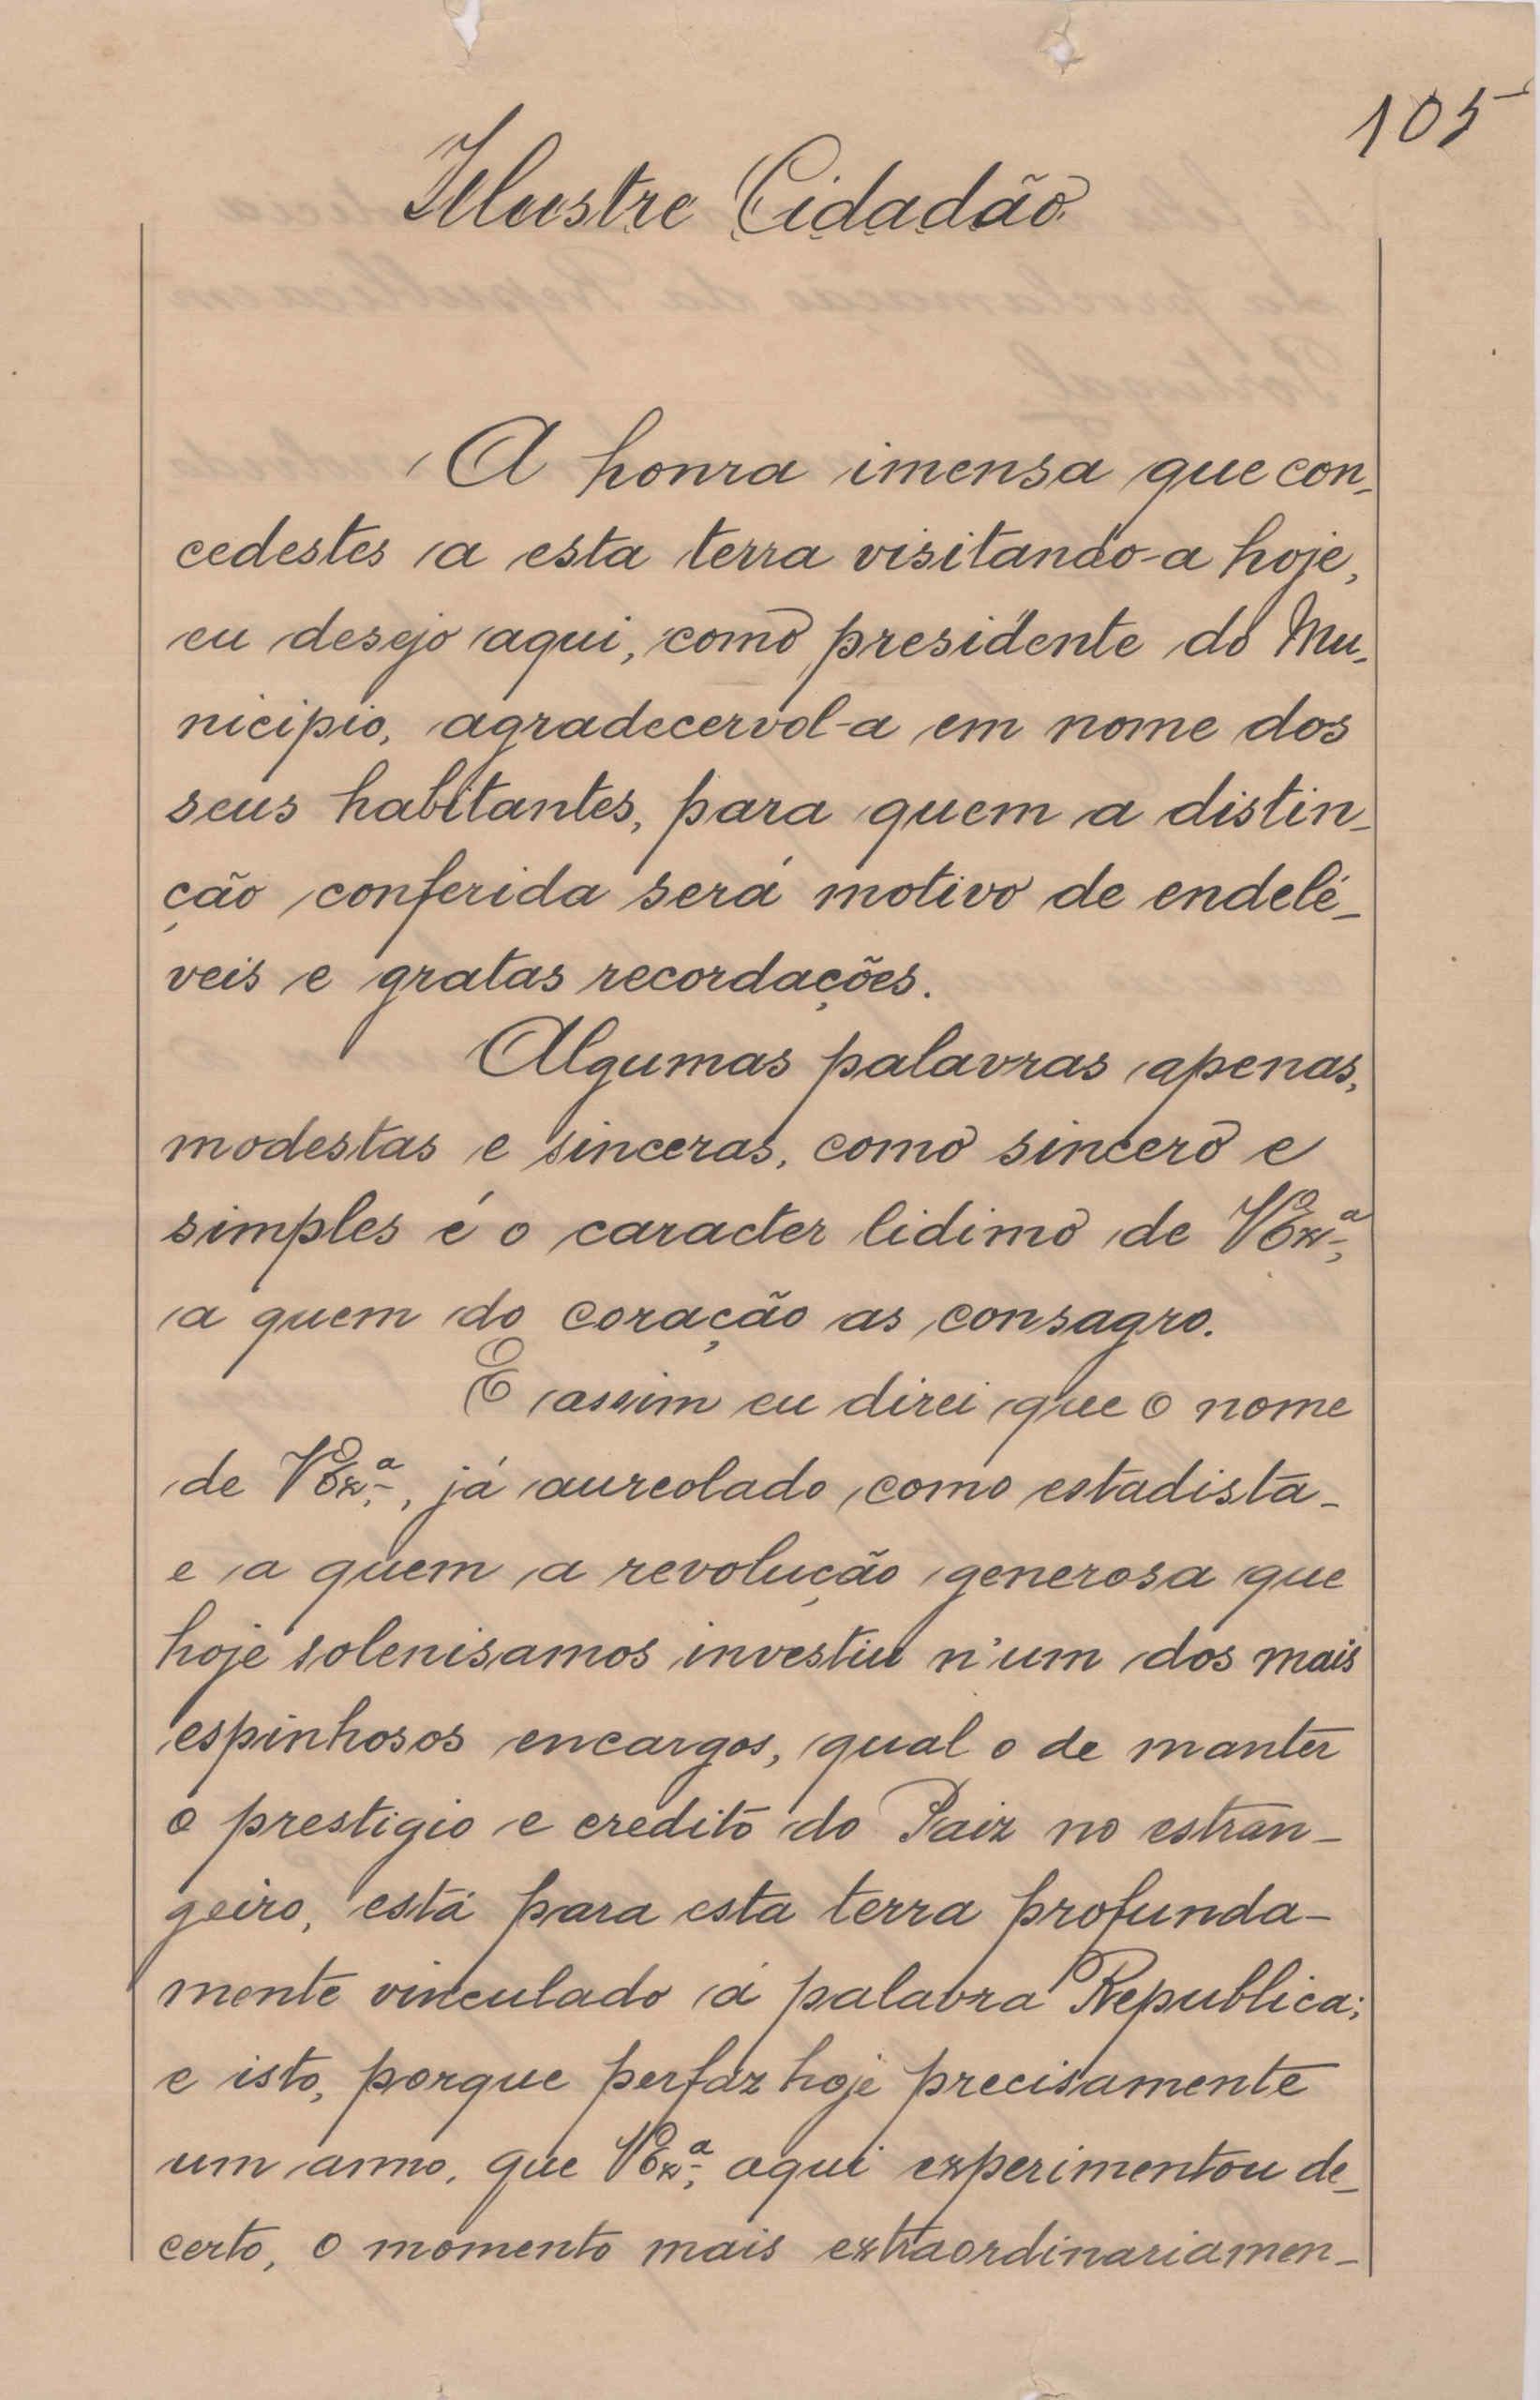 105
Illustre Cidadão
A honra imensa que con-
cedestes a esta terra visitando-a hoje,
eu desejo aqui, como presidente do Mu-
nicipio, agradecervol-a em nome dos
seus habitantes, para quem a distin-
ção conferida será motivo de endelé-
veis e gratas recordações.
Algumas palavras apenas,
modestas e sinceras, como sincero e
simples é o caracter lidimo de VEx.ª,
a quem do coração as consagro.
E assim eu direi que o nome
de VEx.ª, já aureolado como estadista-
e a quem a revolução generosa que
hoje solenisamos investiu n'um dos mais
espinhosos encargos, qual o de manter
o prestigio e credito do Paiz no estran-
geiro, está para esta terra profunda-
mente vinculado á palavra Republica;
e isto, porque perfaz hoje precisamente
um anno, que VEx.ª, aqui experimentou de-
certo, o momento mais extraordinariamen-